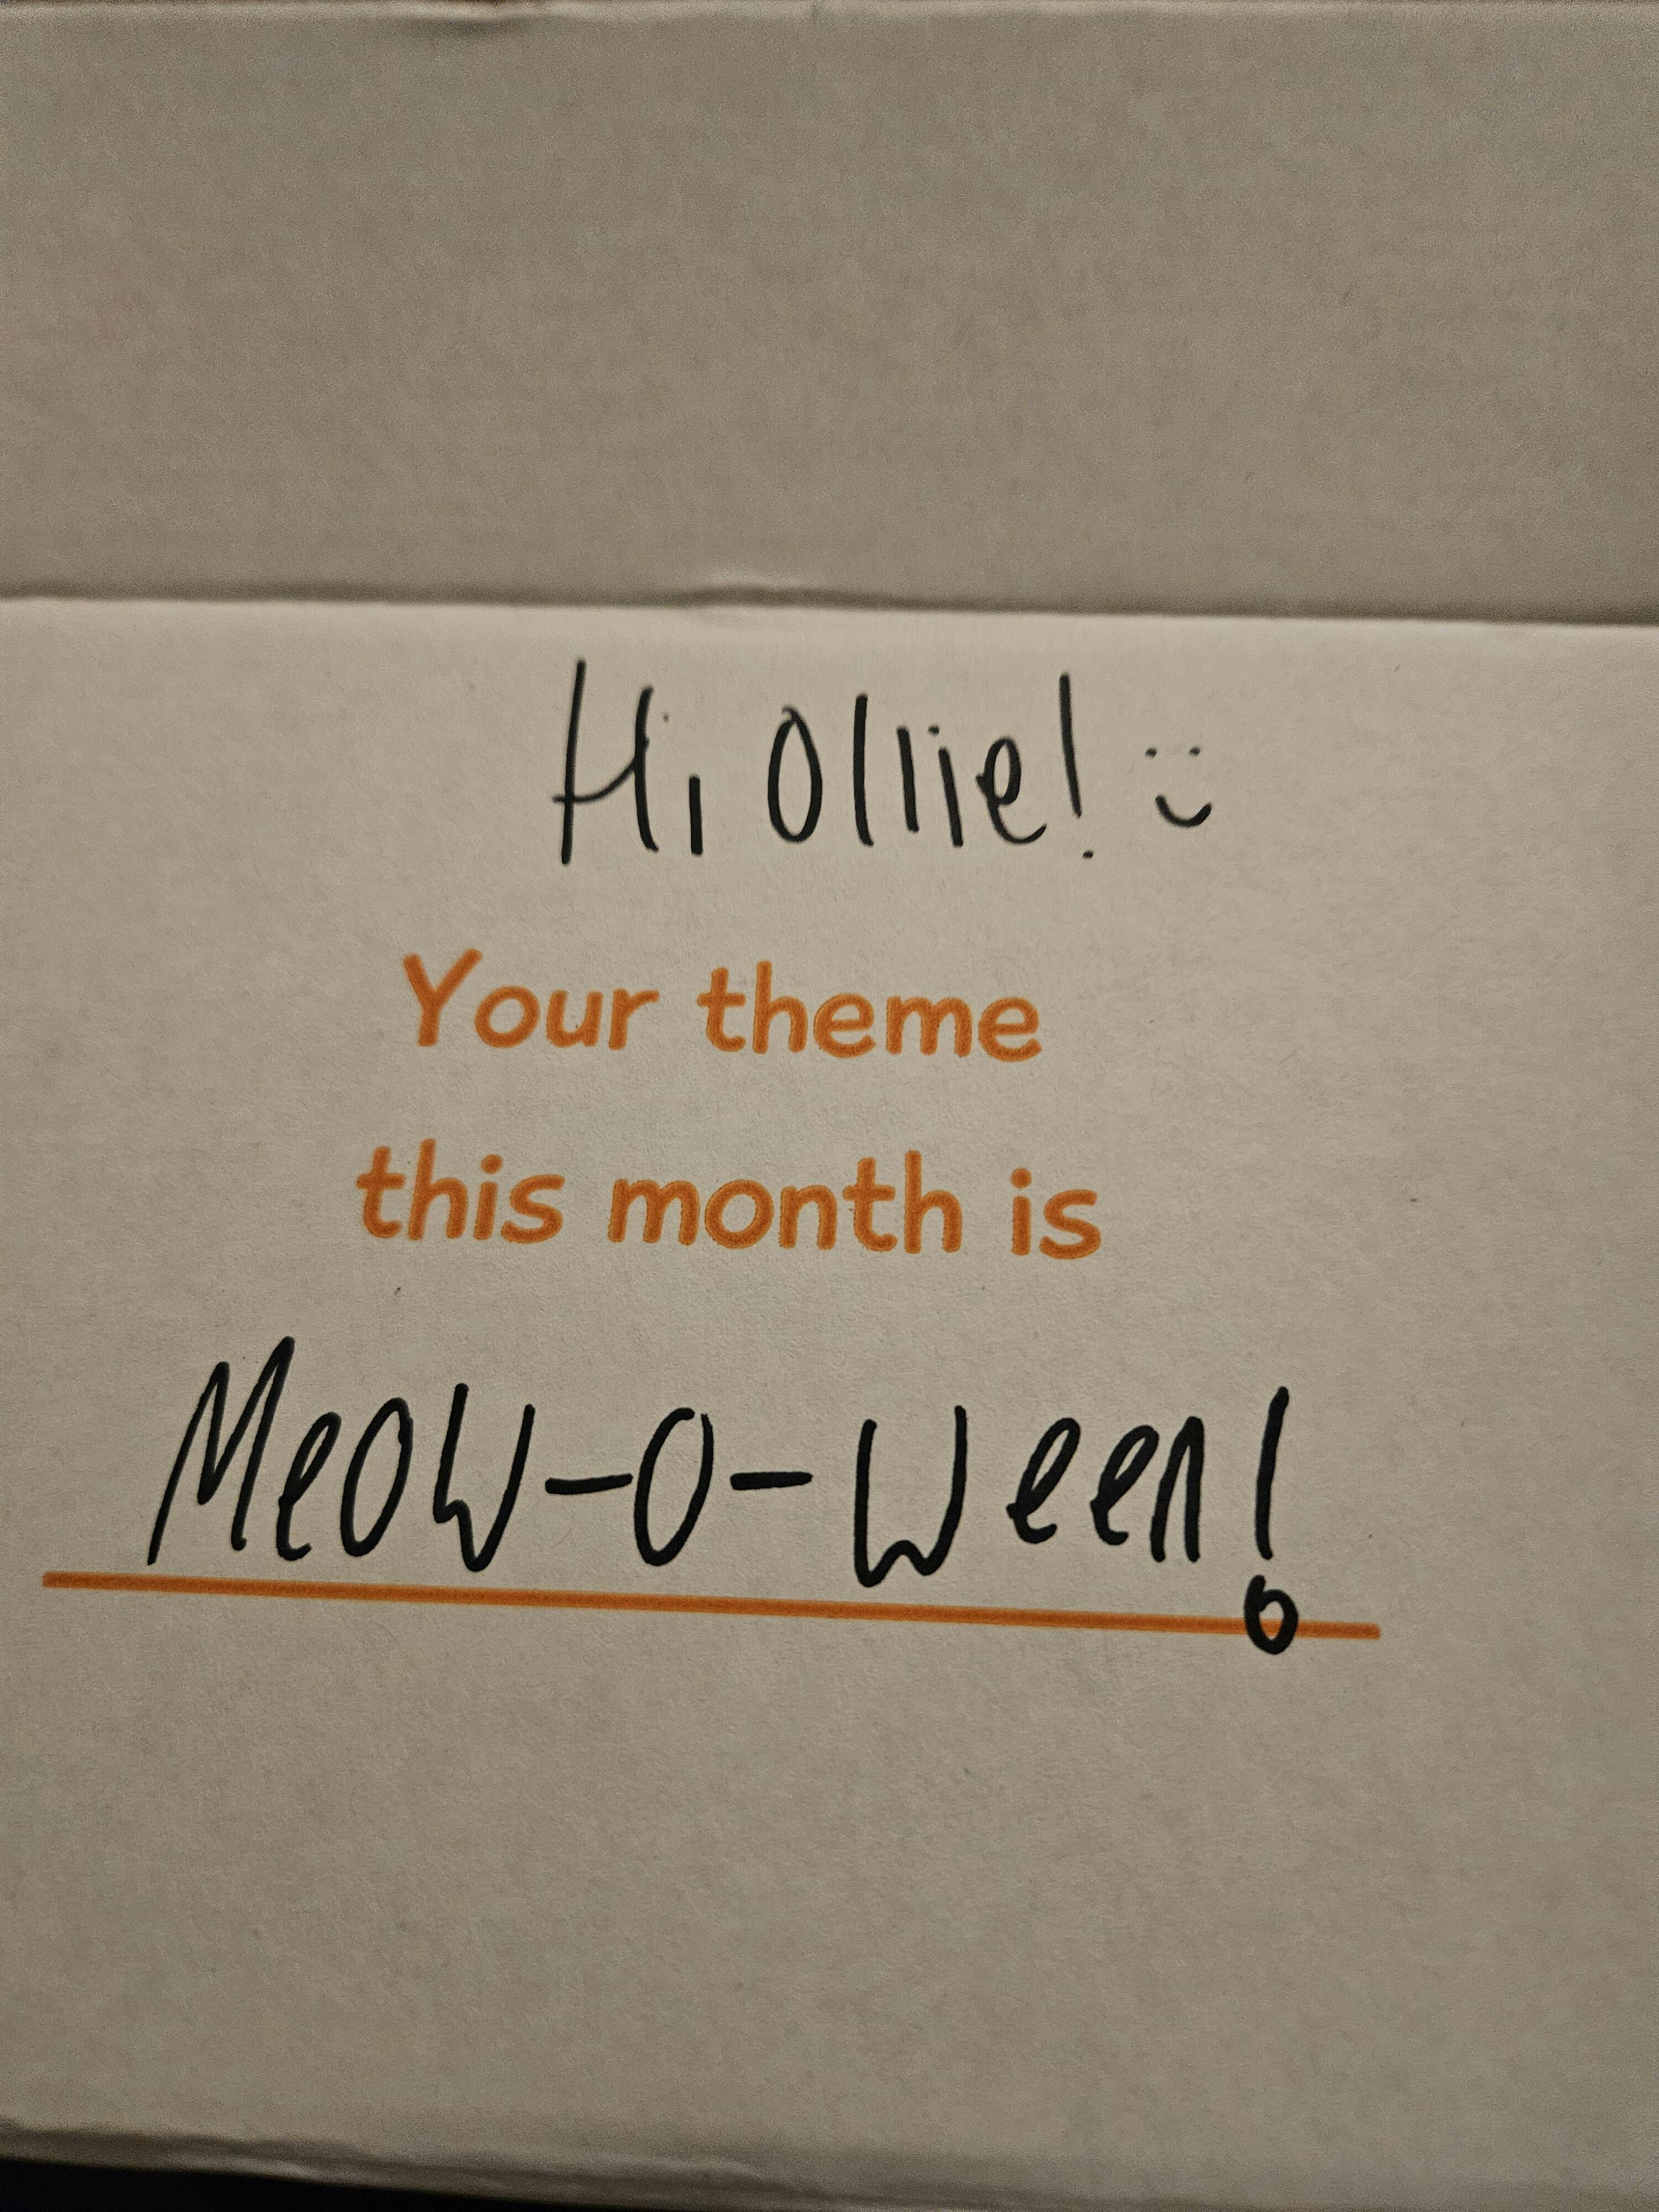 Hi Ollie! :)
Your theme
this month is
Meow-O-Ween!